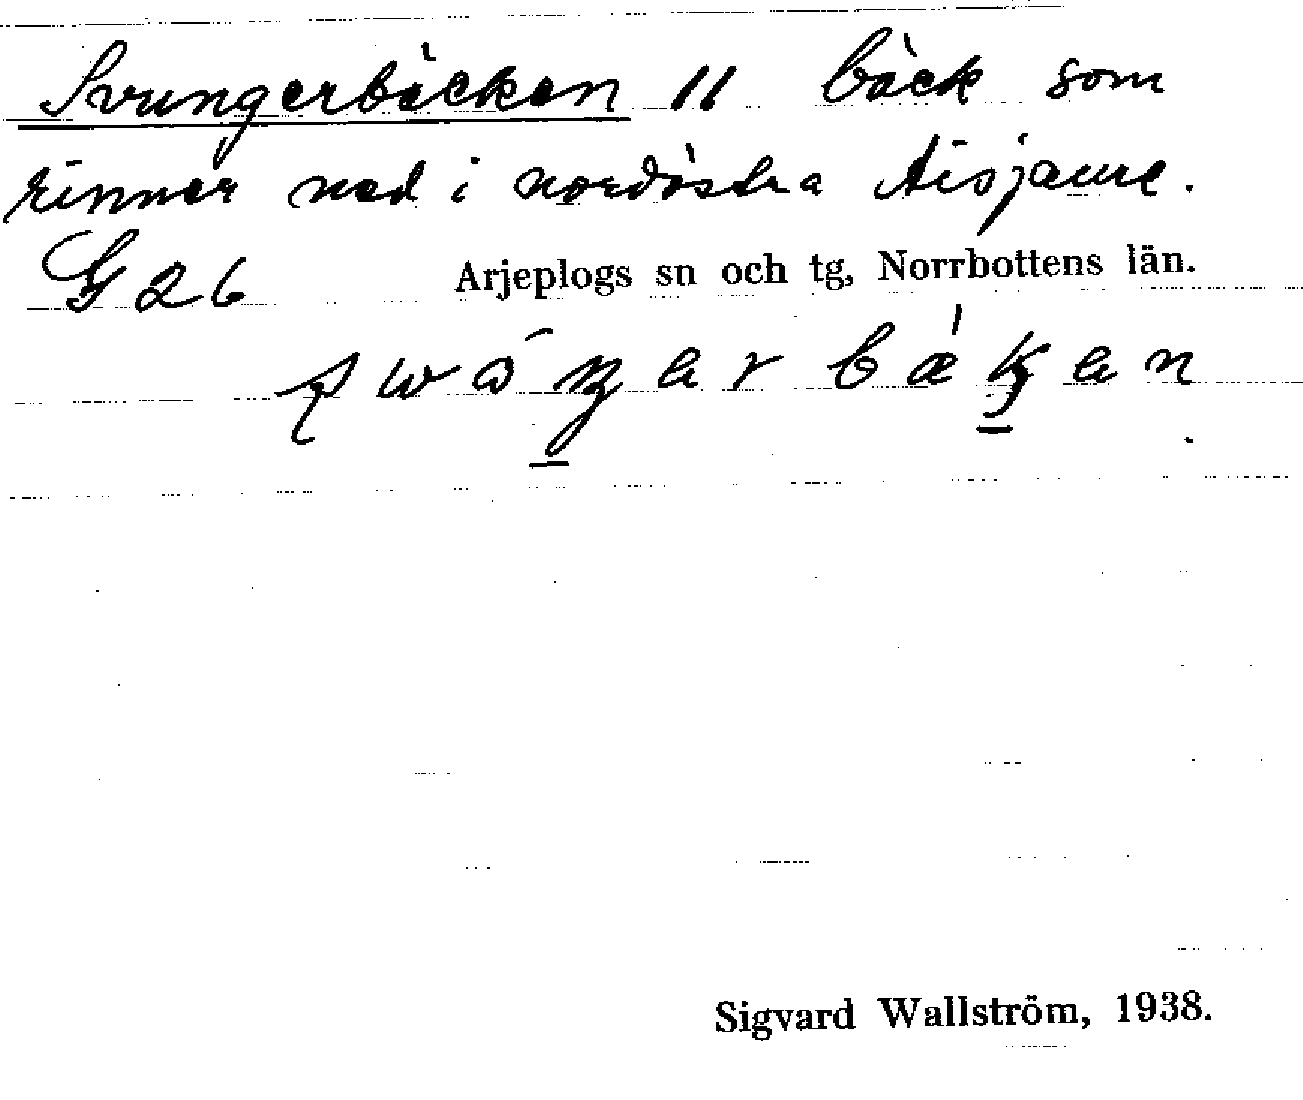 Svungerbäcken 11 bäck som
rinner ned i nordöstra Aisjaure.
G 26 Arjeplogs sn och tg, Norrbottens län.
Sigvard Wallström, 1938.